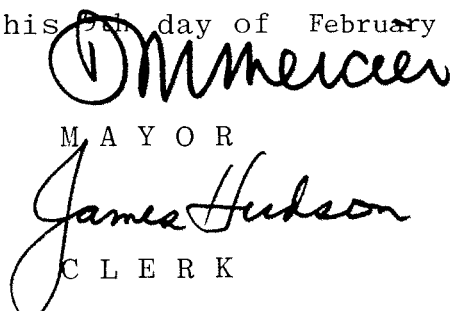 his 9th day of February
DMMercier
MAYOR
James Hudson
CLERK